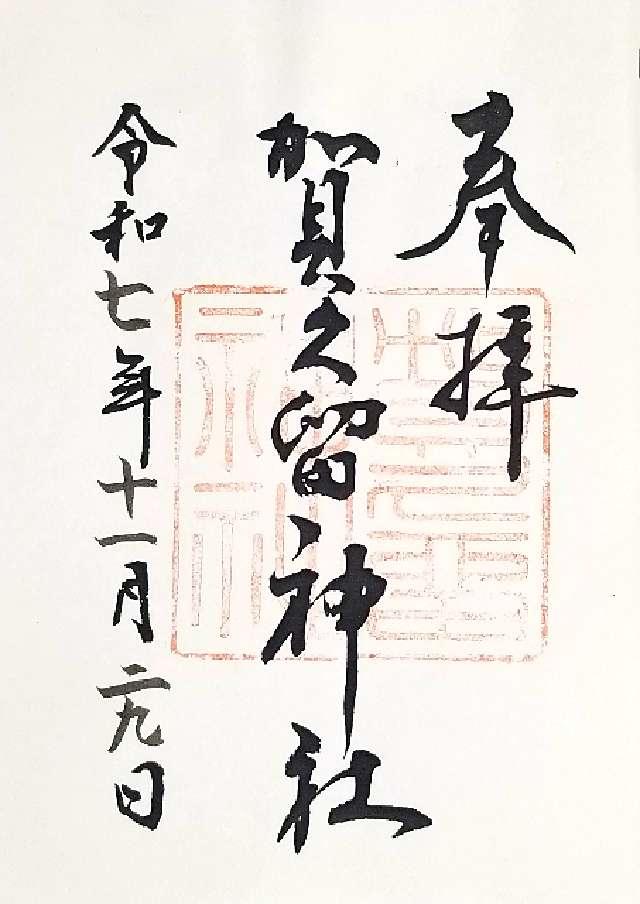 奉拝
賀久留神社
令和七年十一月二九日